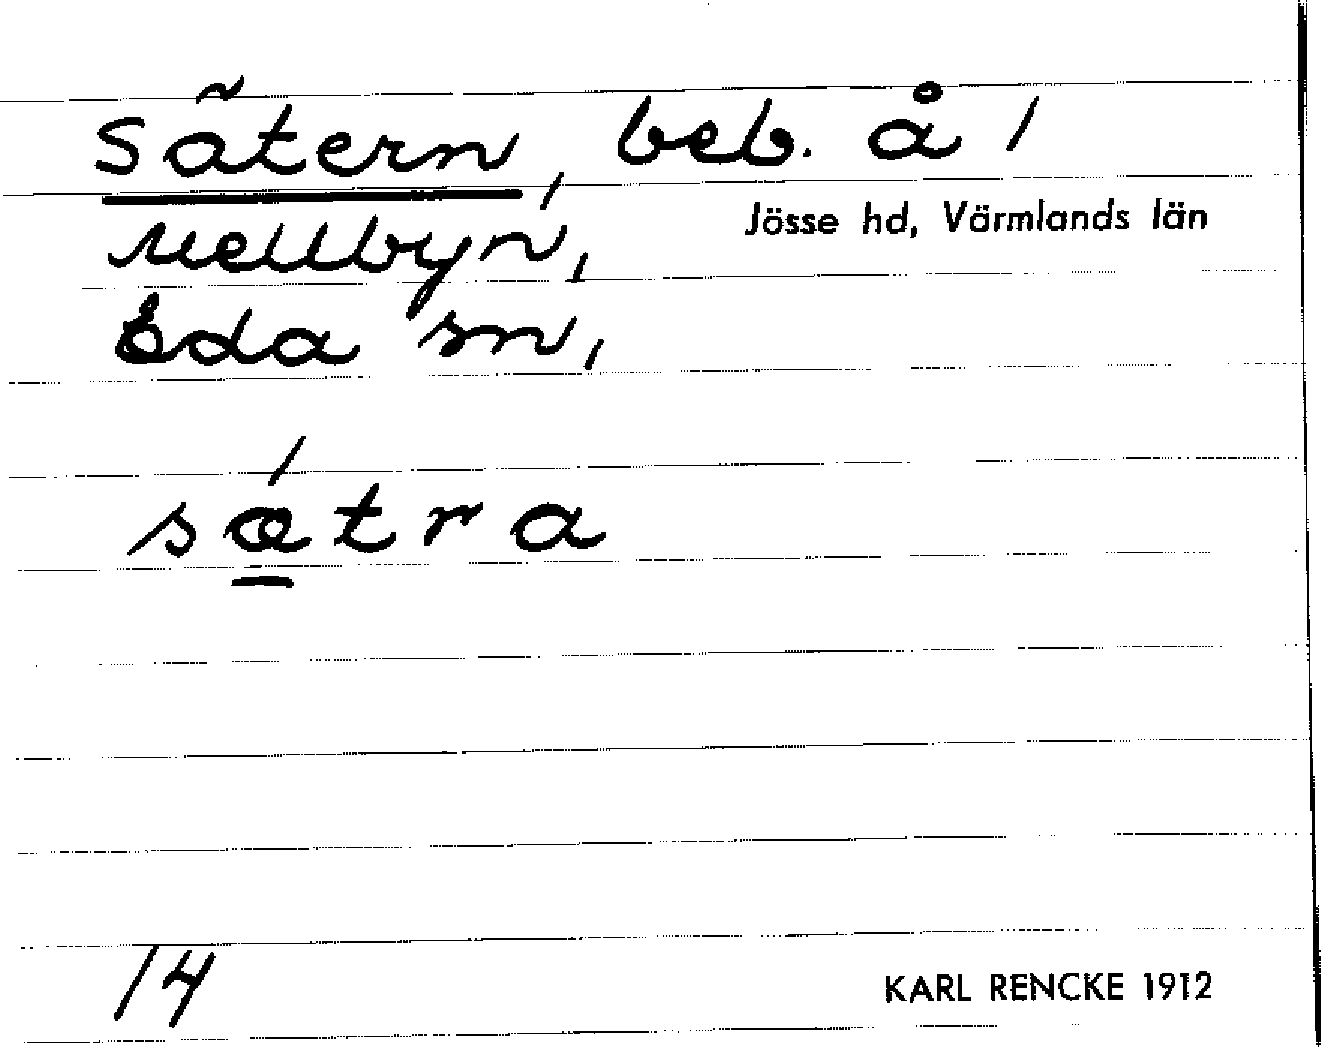 Sätern, beb. å /
Mellbyn, Jösse hd, Värmlands län
Eda sn,
sǽ̱tra
14
KARL RENCKE 1912